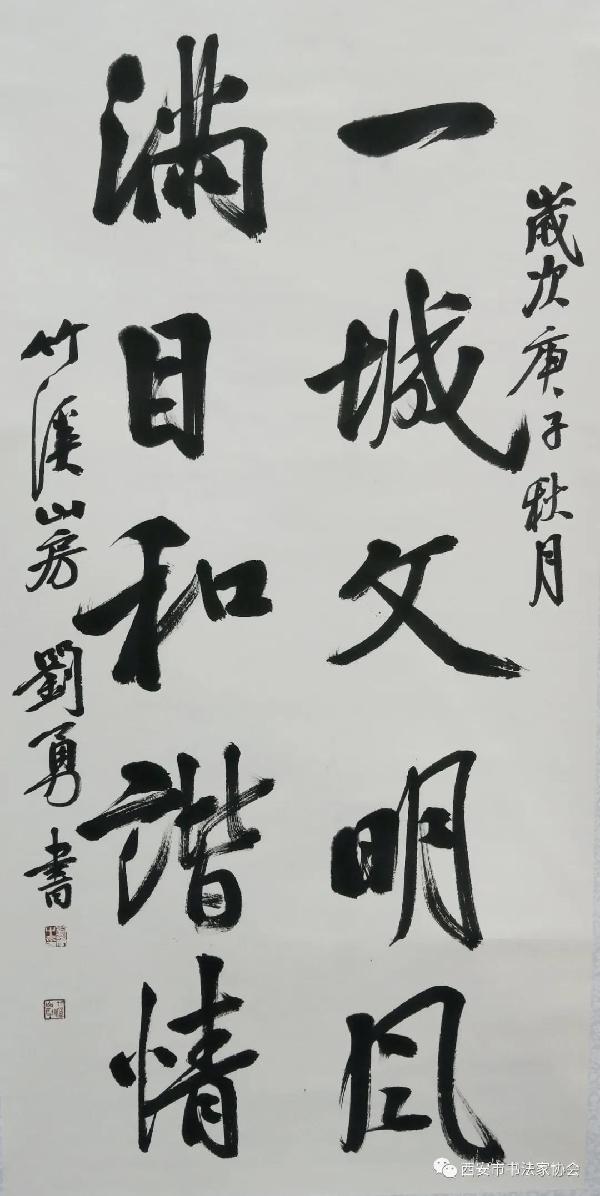 歲次庚子秋月
一城文明风
满目和谐情
竹溪山房 劉勇書
西安市书法家协会